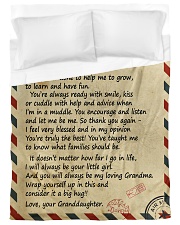 to help me to grow,
to learn and have fun.
You're always ready with smile, kiss
or cuddle with help and advice when
I'm in a muddle. You encourage and listen
and let me be me. So thank you again –
I feel very blessed and in my opinion
You're truly the best! You've taught me
to know what families should be.
It doesn't matter how far I go in life,
I will always be your little girl.
And you will always be my loving Grandma.
Wrap yourself up in this and
consider it a big hug!!
Love, your Granddaughter.